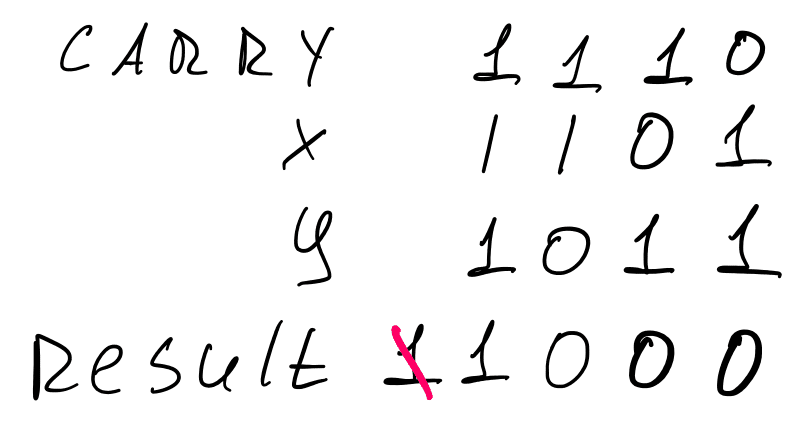 CARRY 1 1 1 0
X 1 1 0 1
Y 1 0 1 1
Result 1 1 0 0 0